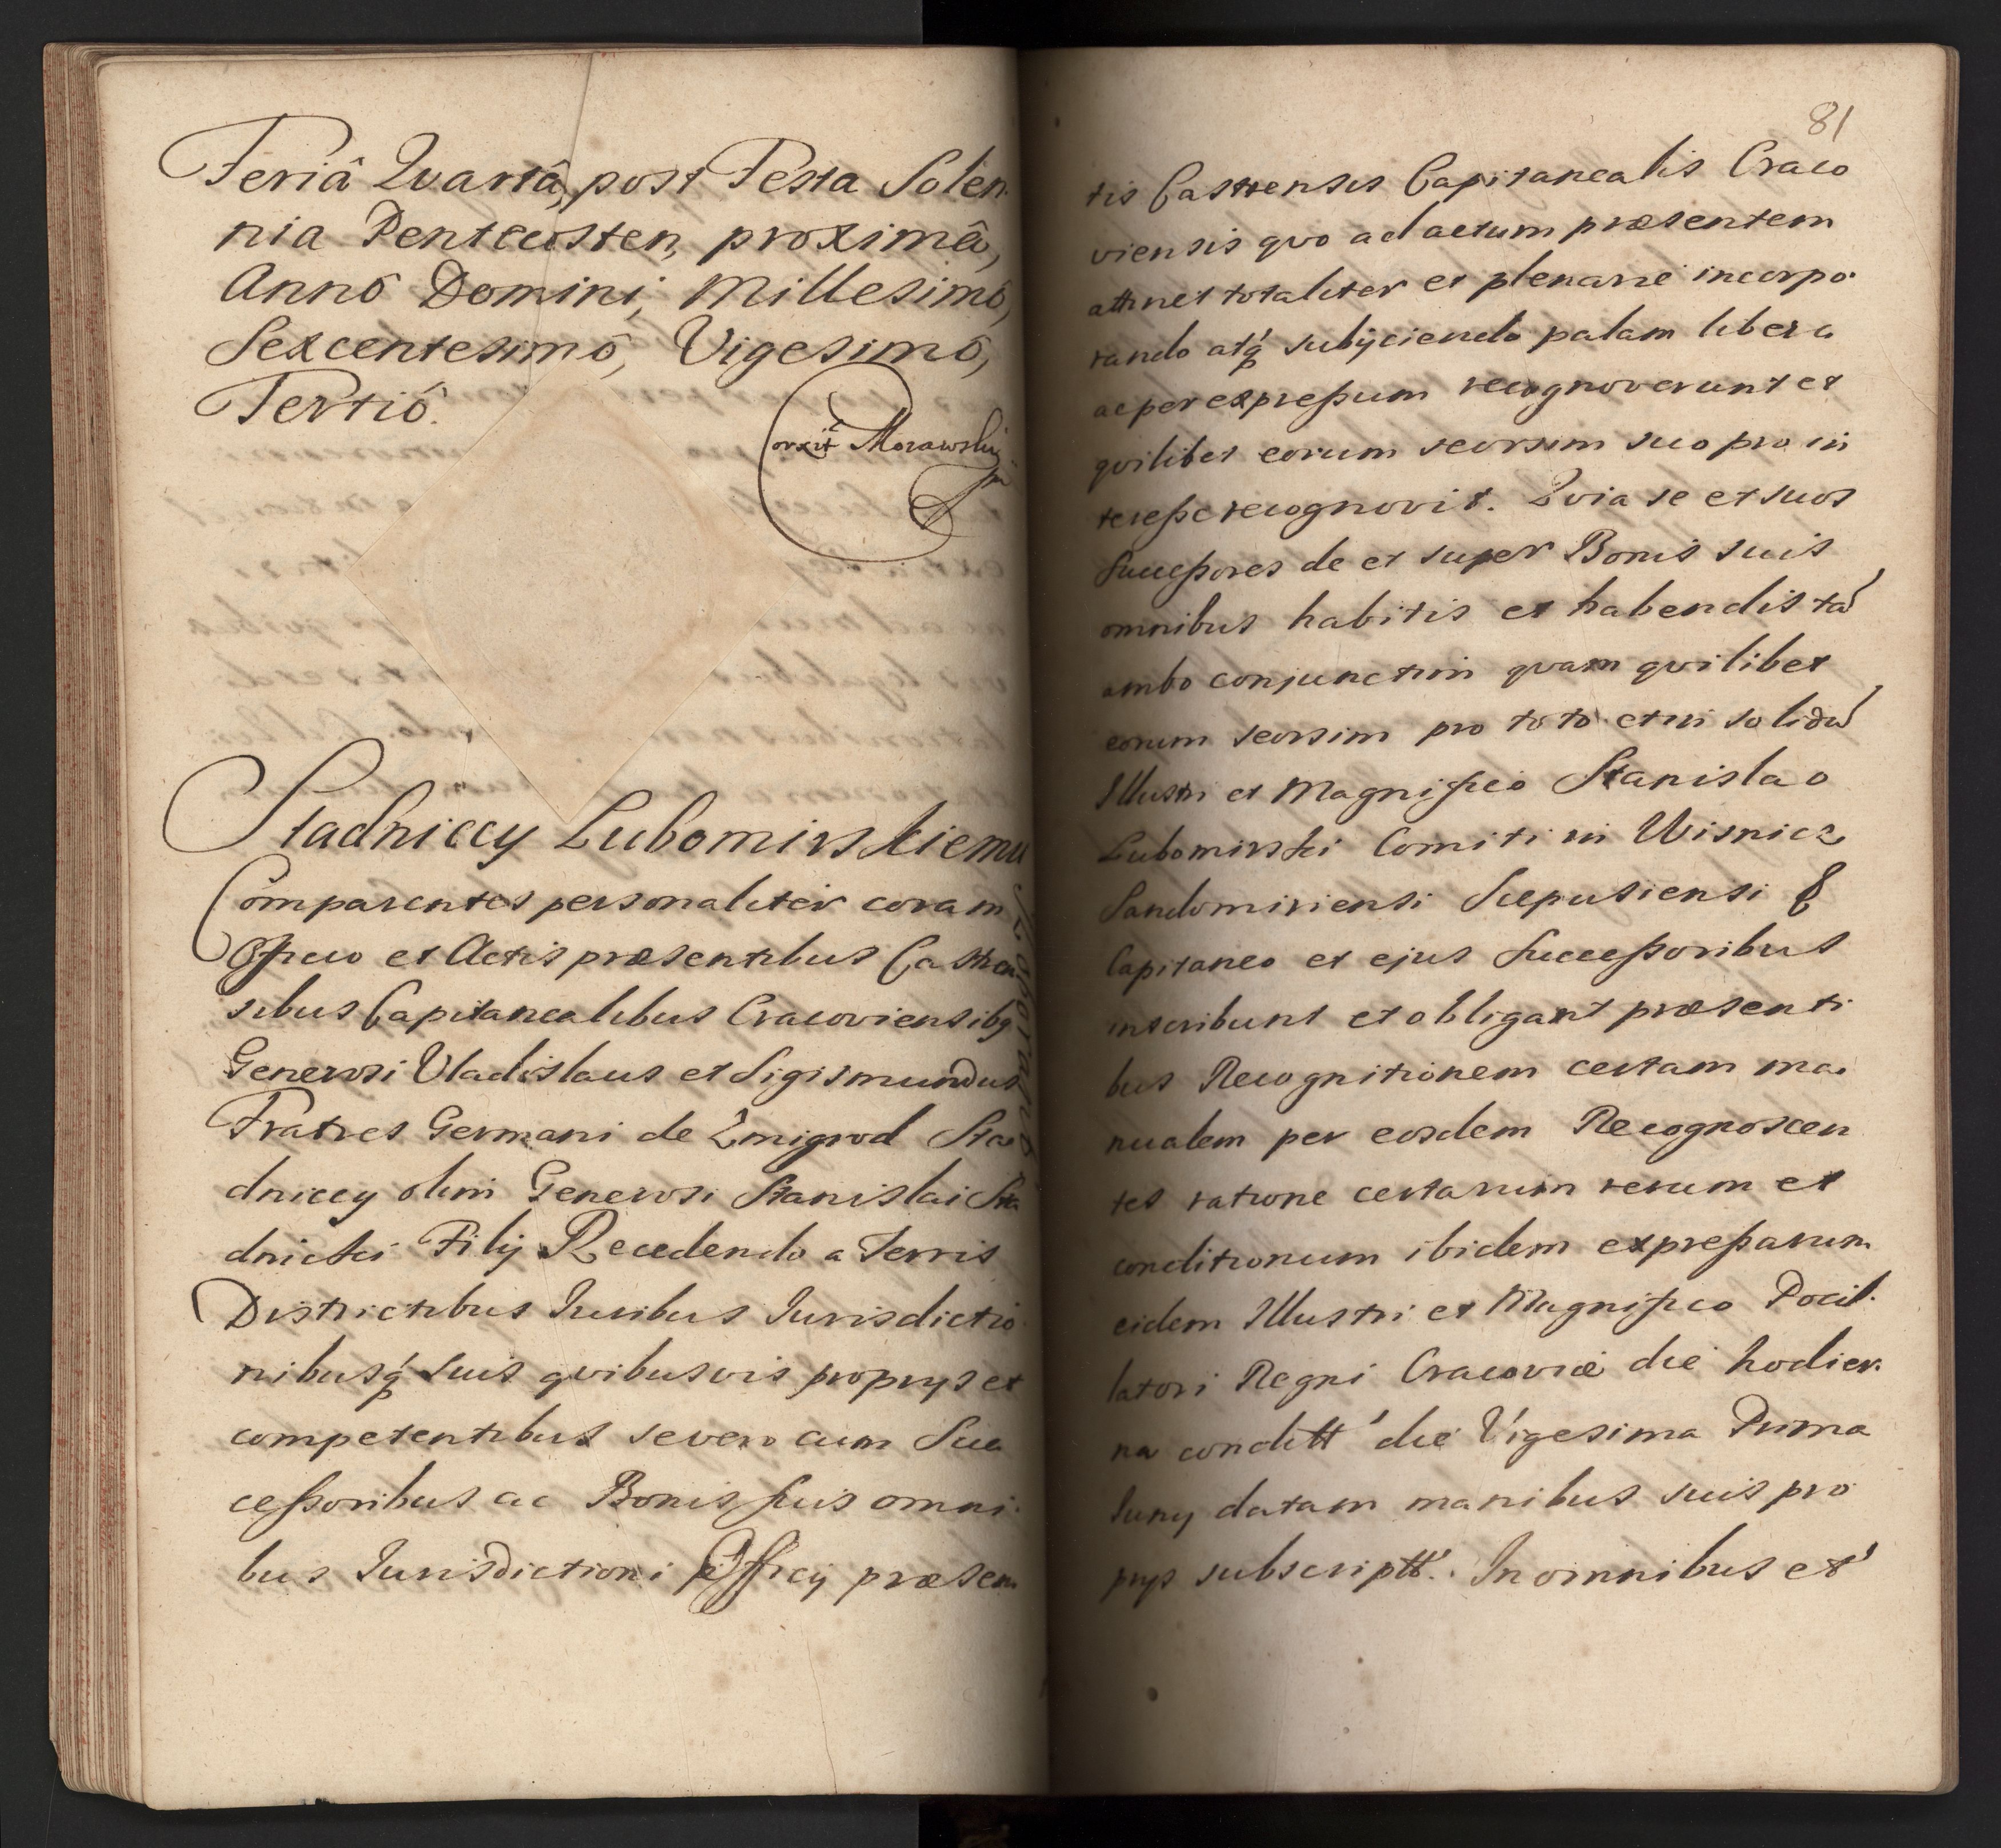 Feriâ Quartâ, post Festa Solen
nia Pentecosten, proximâ,
Annô Domini, Millesimô,
Sexcentesimô, Vigesimô,
Tertiô.
Corxit Morawski
Stadniccy Lubomirskiemu
Comparentes personaliter coram
Officio et Actis præsentibus Castren
sibus Capitanealibus Cracoviensibq
Generosi Vladislaus et Sigismundus
Fratres Germani de Zmigrod Sta
dniccy olim Generosi Stanislai Sta
dnicki Filij Recedendo a Terris
Districtibus Iuribus Iurisdictio
nibusq́ suis quibusvis proprys et
competentibus se vero cum Suc
ceßoribus ac Bonis suis omni
bus Iurisdictioni Officij præsen
81
tis Castrensis Capitanealis Craco
viensis quo ad actum præsentem
attinet totaliter et plenarie incorpo
rando atq́ subijciendo palam libere
ac per expreßum recognoverunt et
quilibet eorum seorsim suo pro in
tereße recognovit. Quia se et suos
Succeßores de et super Bonis suis
omnibus habitis et habendis tam̃
ambo conjunctim quam quilibet
eorum seorsim pro toto et in solidũ
Illustri et Magnifico Stanislao
Lubomirski Comiti in Wisnicz
Sandomiriensi Scepusiensi &
Capitaneo et ejus Succeßoribus
inscribunt et obligant præsenti
bus Recognitionem certam ma
nualem per eosdem Recognoscen
tes ratione certarum rerum et
conditionum ibidem expreßarum
eidem Illustri et Magnifico Pocil
latori Regni Cracoviæ die hodier
na conditt' die Vigesima Prima
Iuny datam manibus suis pro
prys subscriptt'. In omnibus et'